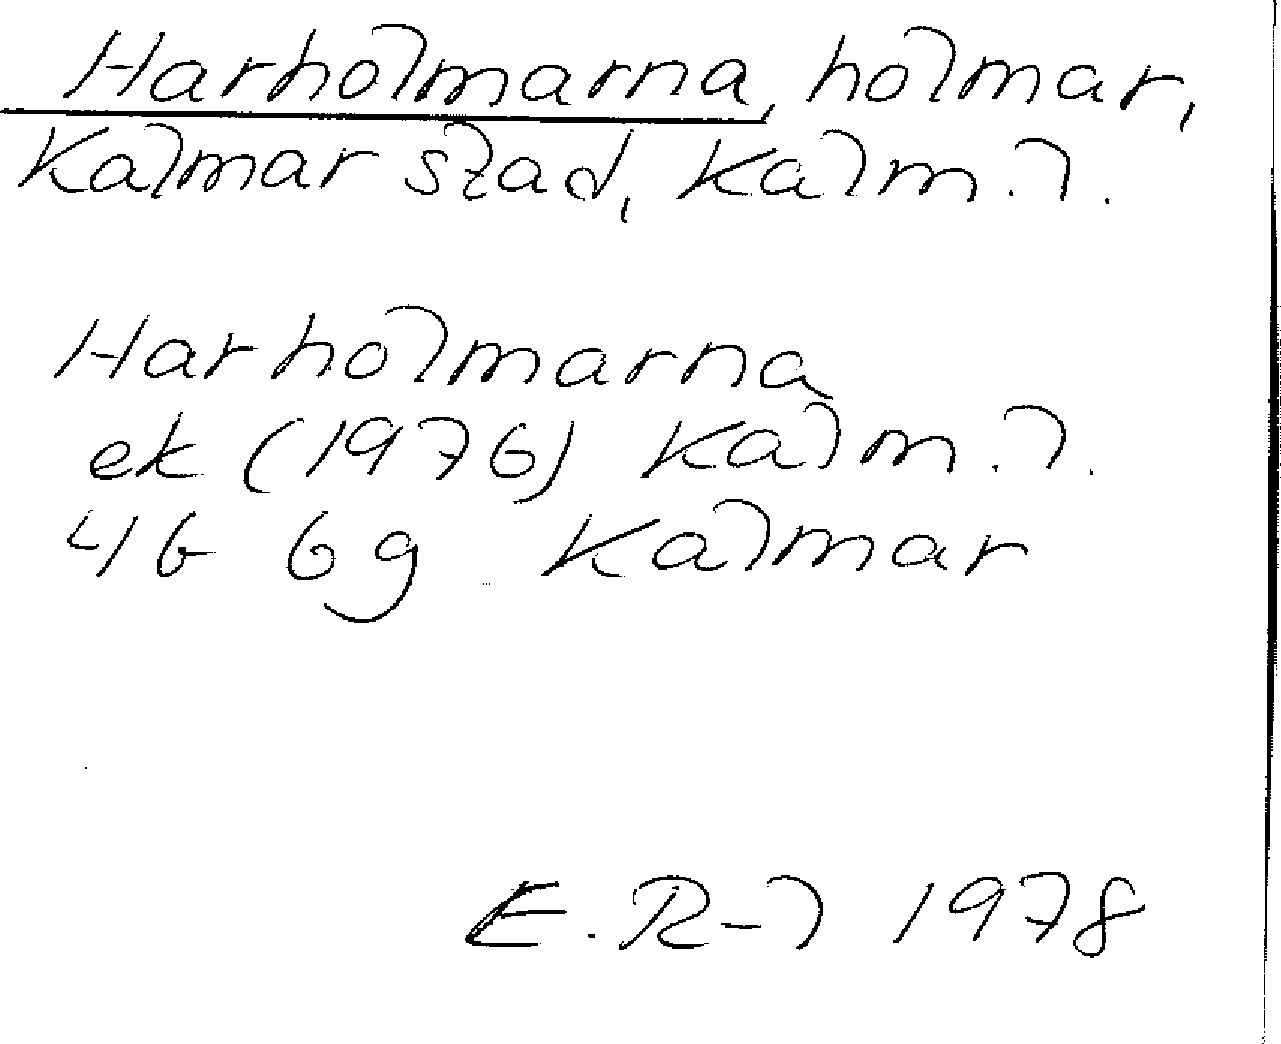 Harholmarna, holmar,
Kalmar stad, Kalm. l.
Harholmarna
ek (1976) Kalm. l.
4G 6g Kalmar
E. R-l 1978